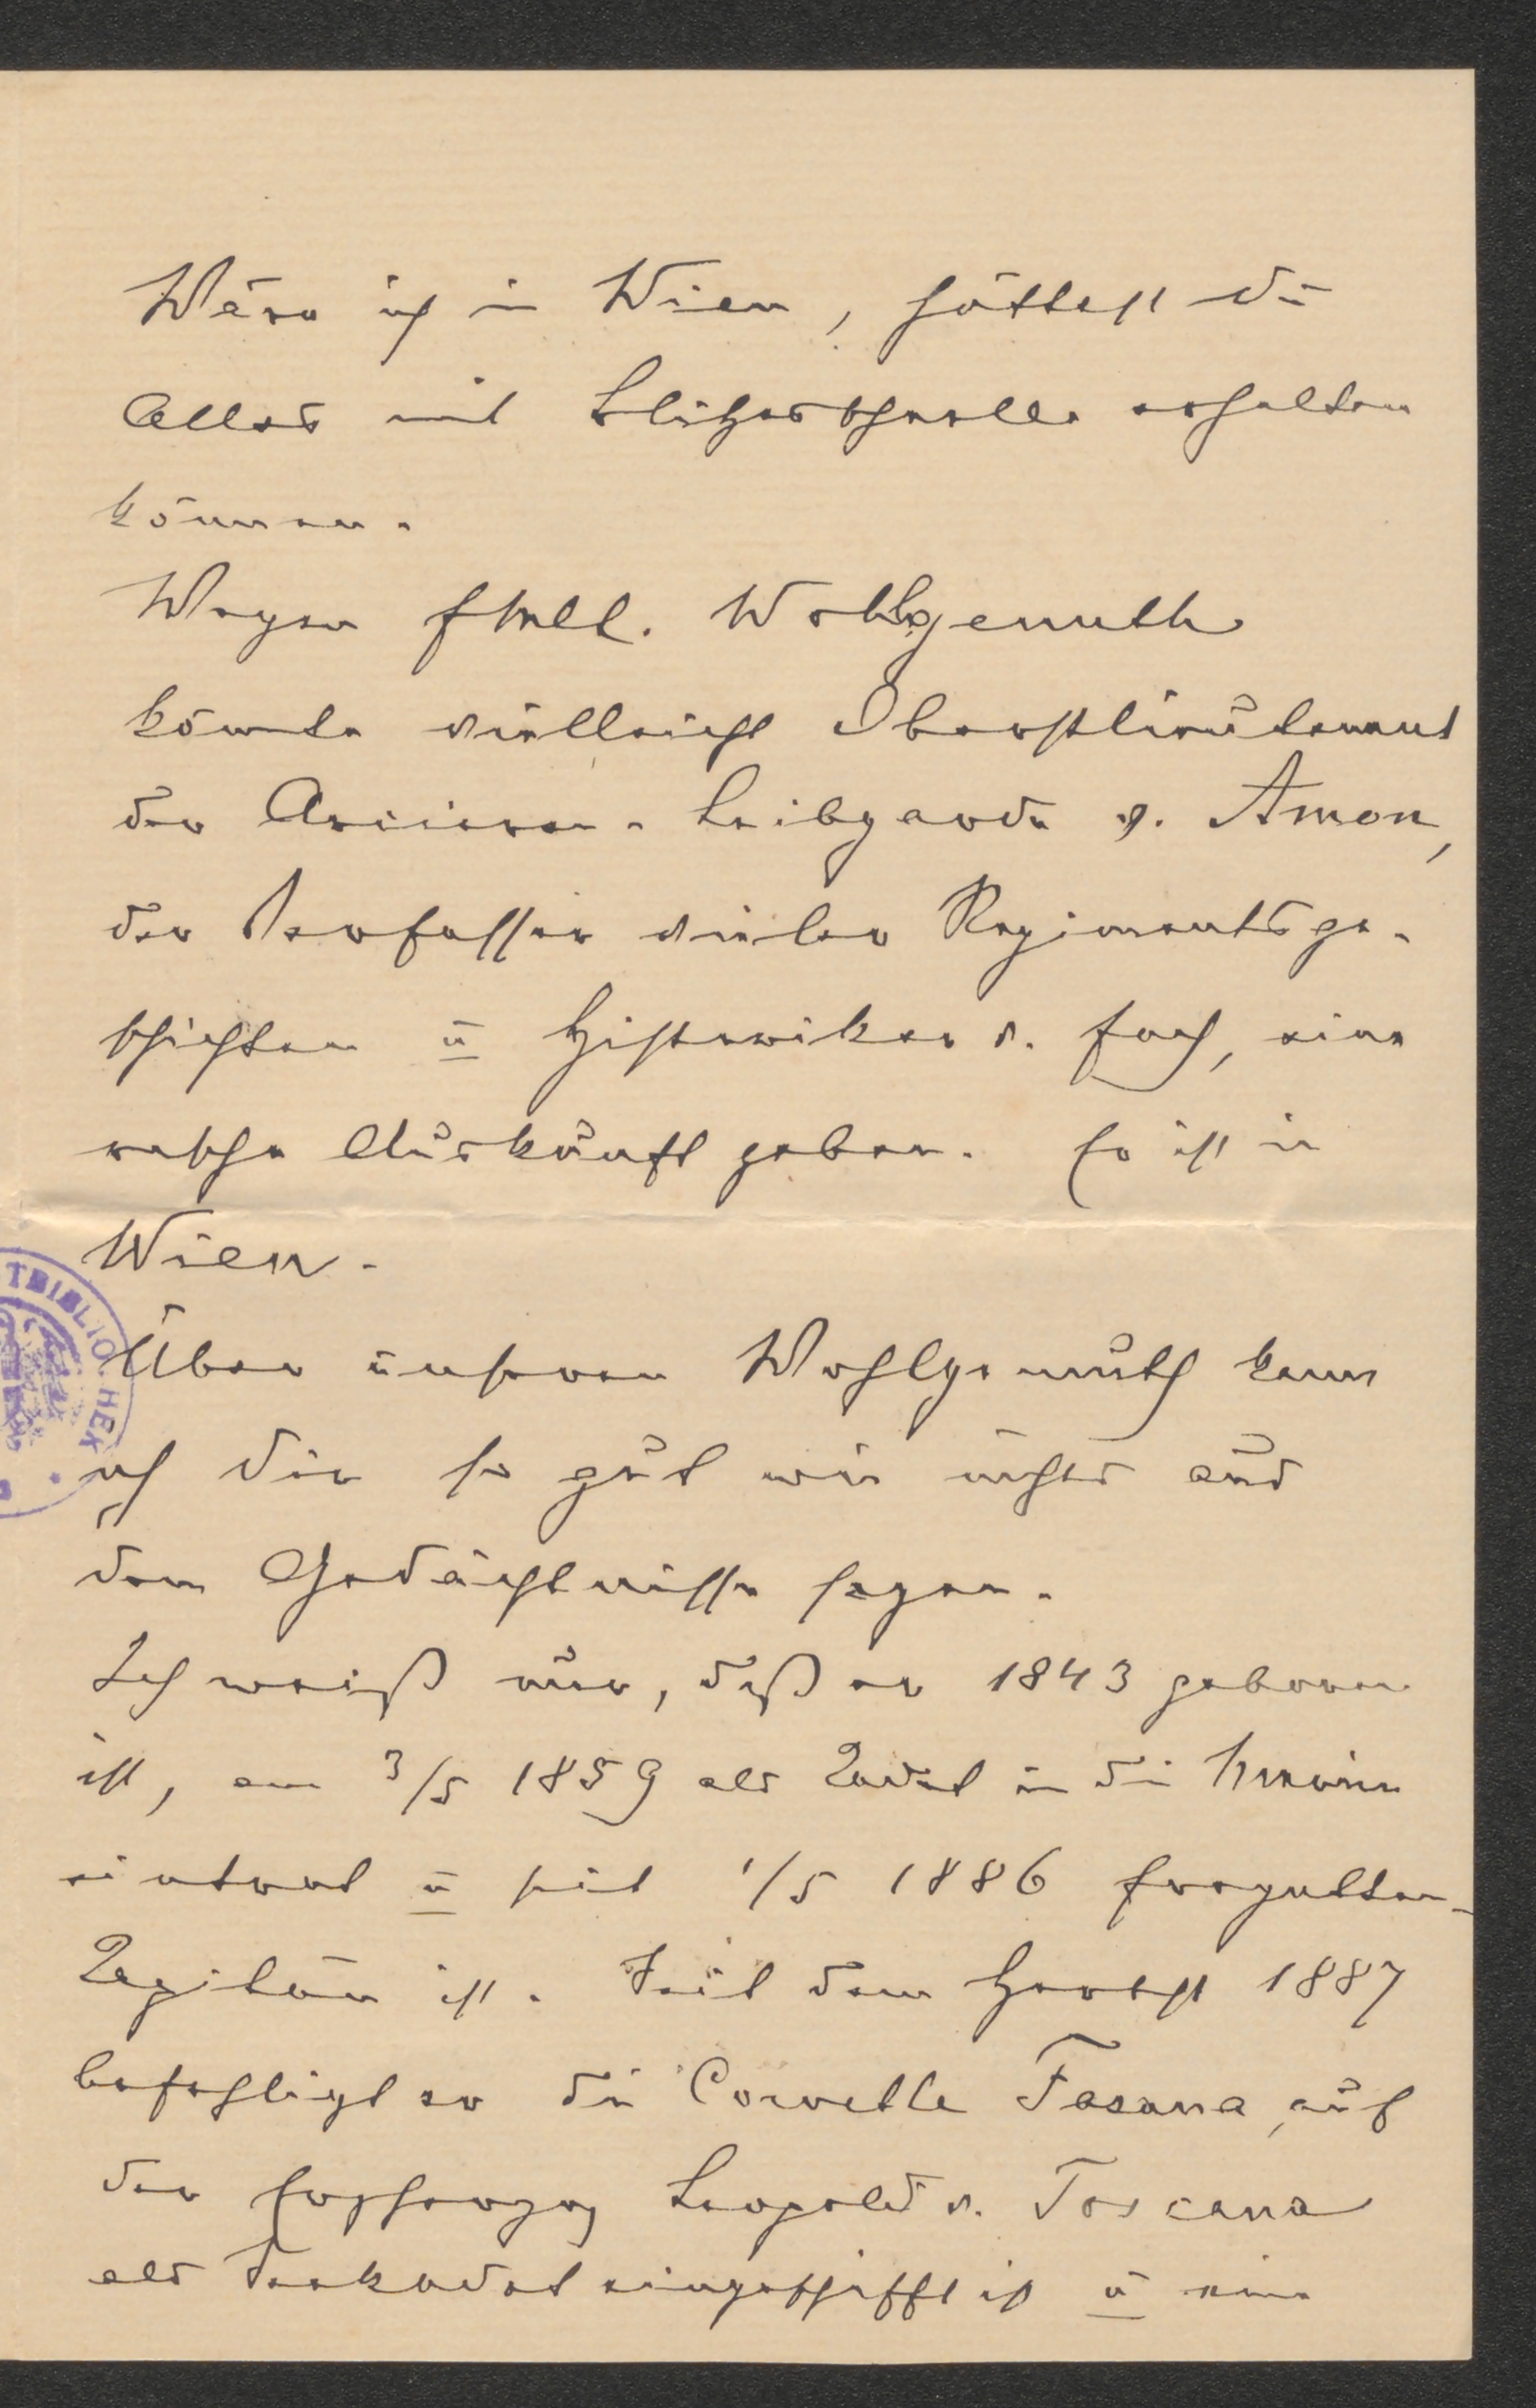 Wäre ich in Wien, hättest du
Alles mit Blitzesschnelle erhalten
können.
Wegen FML. Wohlgemuth
könnte vielleicht Oberstlieutenant
der Arcieren-Leibgarde v. Amon,
der Verfasser vieler Regimentsge-
schichten u Historiker v. Fach, eine
rasche Auskunft geben. Er ist in
Wien.
Über unseren Wohlgemuth kann
ich dir so gut wie nichts aus
dem Gedächtnisse sagen.
Ich weiß nur, daß er 1843 geboren
ist, am 3/5 1859 als Cadet in die Marine
eintrat u seit 1/5 1886 Fregatten-
Capitän ist. Seit dem Herbst 1887
befehligt er die Corvette Fasana, auf
der Erzherzog Leopold v. Toscana
als Seekadet eingeschifft ist u eine
TBIBLIOTHEK